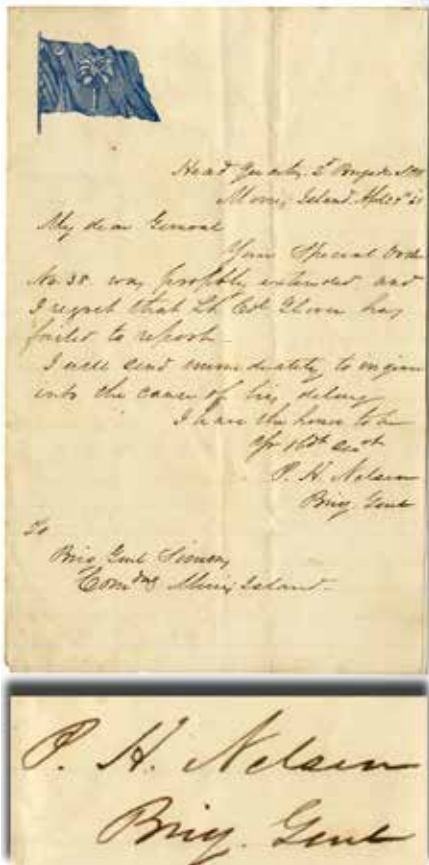 Head Quarters, 2d Brigade
Morris Island. Apl 61
My dear General
Your Special Order
No 38 was promptly extended and
I regret that Lt Col Glover has
failed to report.
I will send immediately to inquire
into the cause of his delay
I have the honor to be
Yr obdt Servt
P. H. Nelson
Brig. Genl
To
Brig Genl Simons
Comdng Morris Island.
P. H. Nelson
Brig. Genl